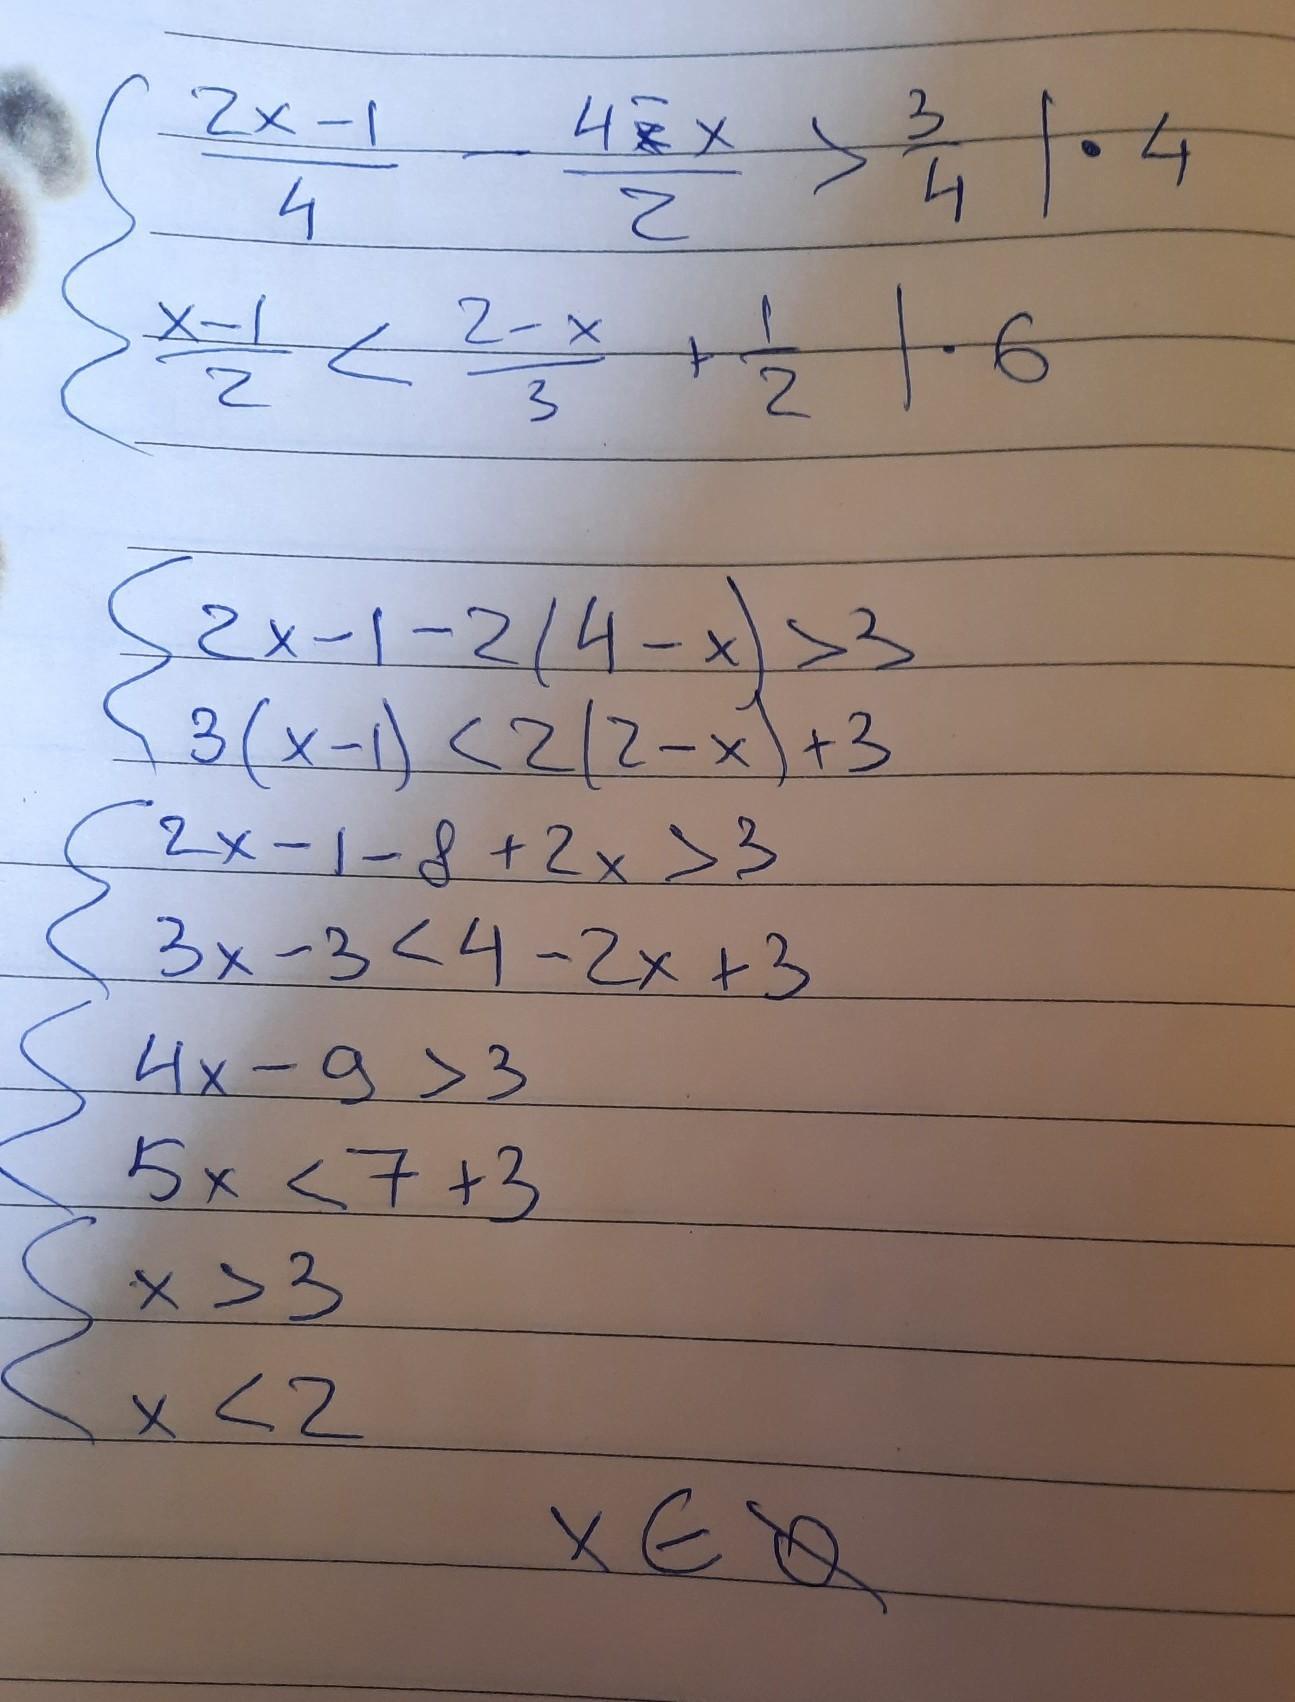 { (2x-1)/4 - (4-x)/2 > 3/4 | · 4
(x-1)/2 < (2-x)/3 + 1/2 | · 6
{ 2x-1-2(4-x) > 3
3(x-1) < 2(2-x)+3
{ 2x-1-8+2x > 3
3x-3 < 4-2x+3
{ 4x-9 > 3
5x < 7+3
{ x > 3
x < 2
x ∈ ∅